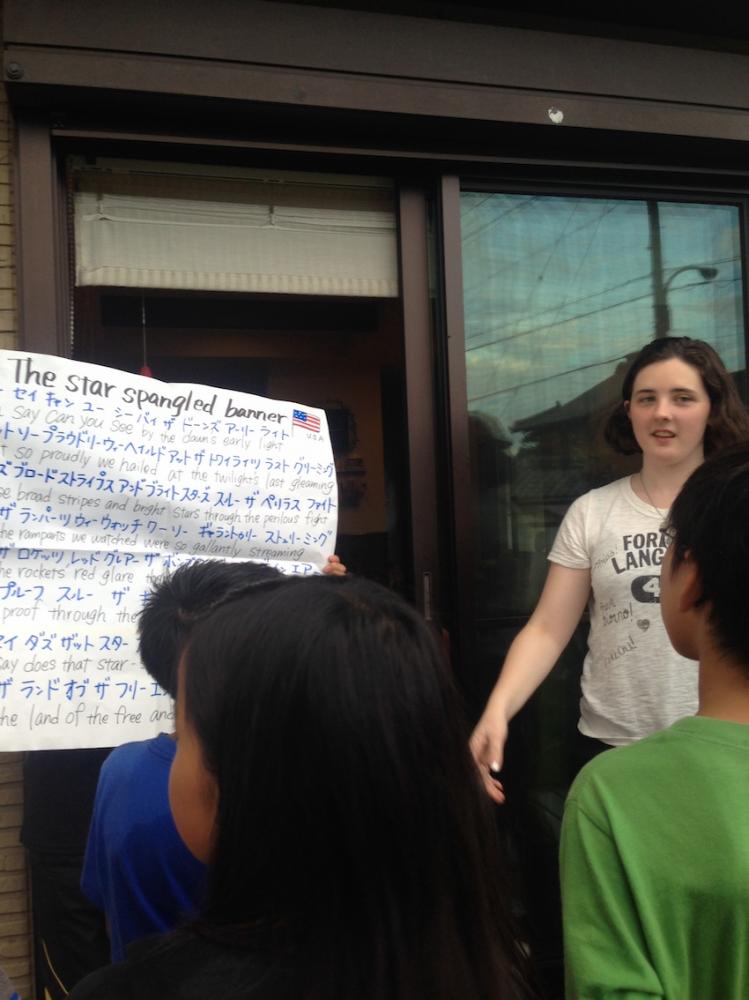 The star spangled banner
セイ キャン ユー シー バイ ザ ドーンズ アーリー ライト
USA
say Can you see by the dawn's early light
ソー プラウドリー ウィー ヘイルド アット ザ トワイライツ ラスト グリーミング
so proudly we hailed at the twilight's last gleaming
ブロード ストライプス アンド ブライト スターズ スルー ザ ペリラス ファイト
broad stripes and bright stars through the perilous fight
ザ ランパーツ ウィー ウォッチ ワー ソー ギャラントゥリー ストゥリーミング
the ramparts we watched were so gallantly streaming
ザ ロケッツ レッド グレアー ザ
the rockets red glare the
プルーフ スルー ザ
proof through the
イ ダズ ザット スター
say does that star-
ザ ランド オブ ザ フリー
the land of the free and
FOR
LANG
4